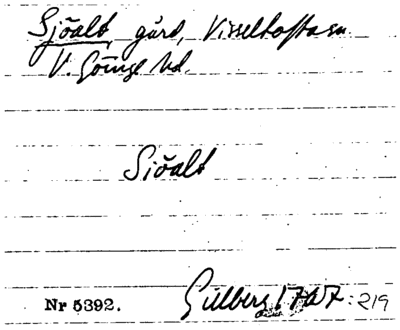 Sjöalt gård, Visseltofta sn
V. Göinge hd.
Siöalt
Nr 5392. Gillberg 1767: 219